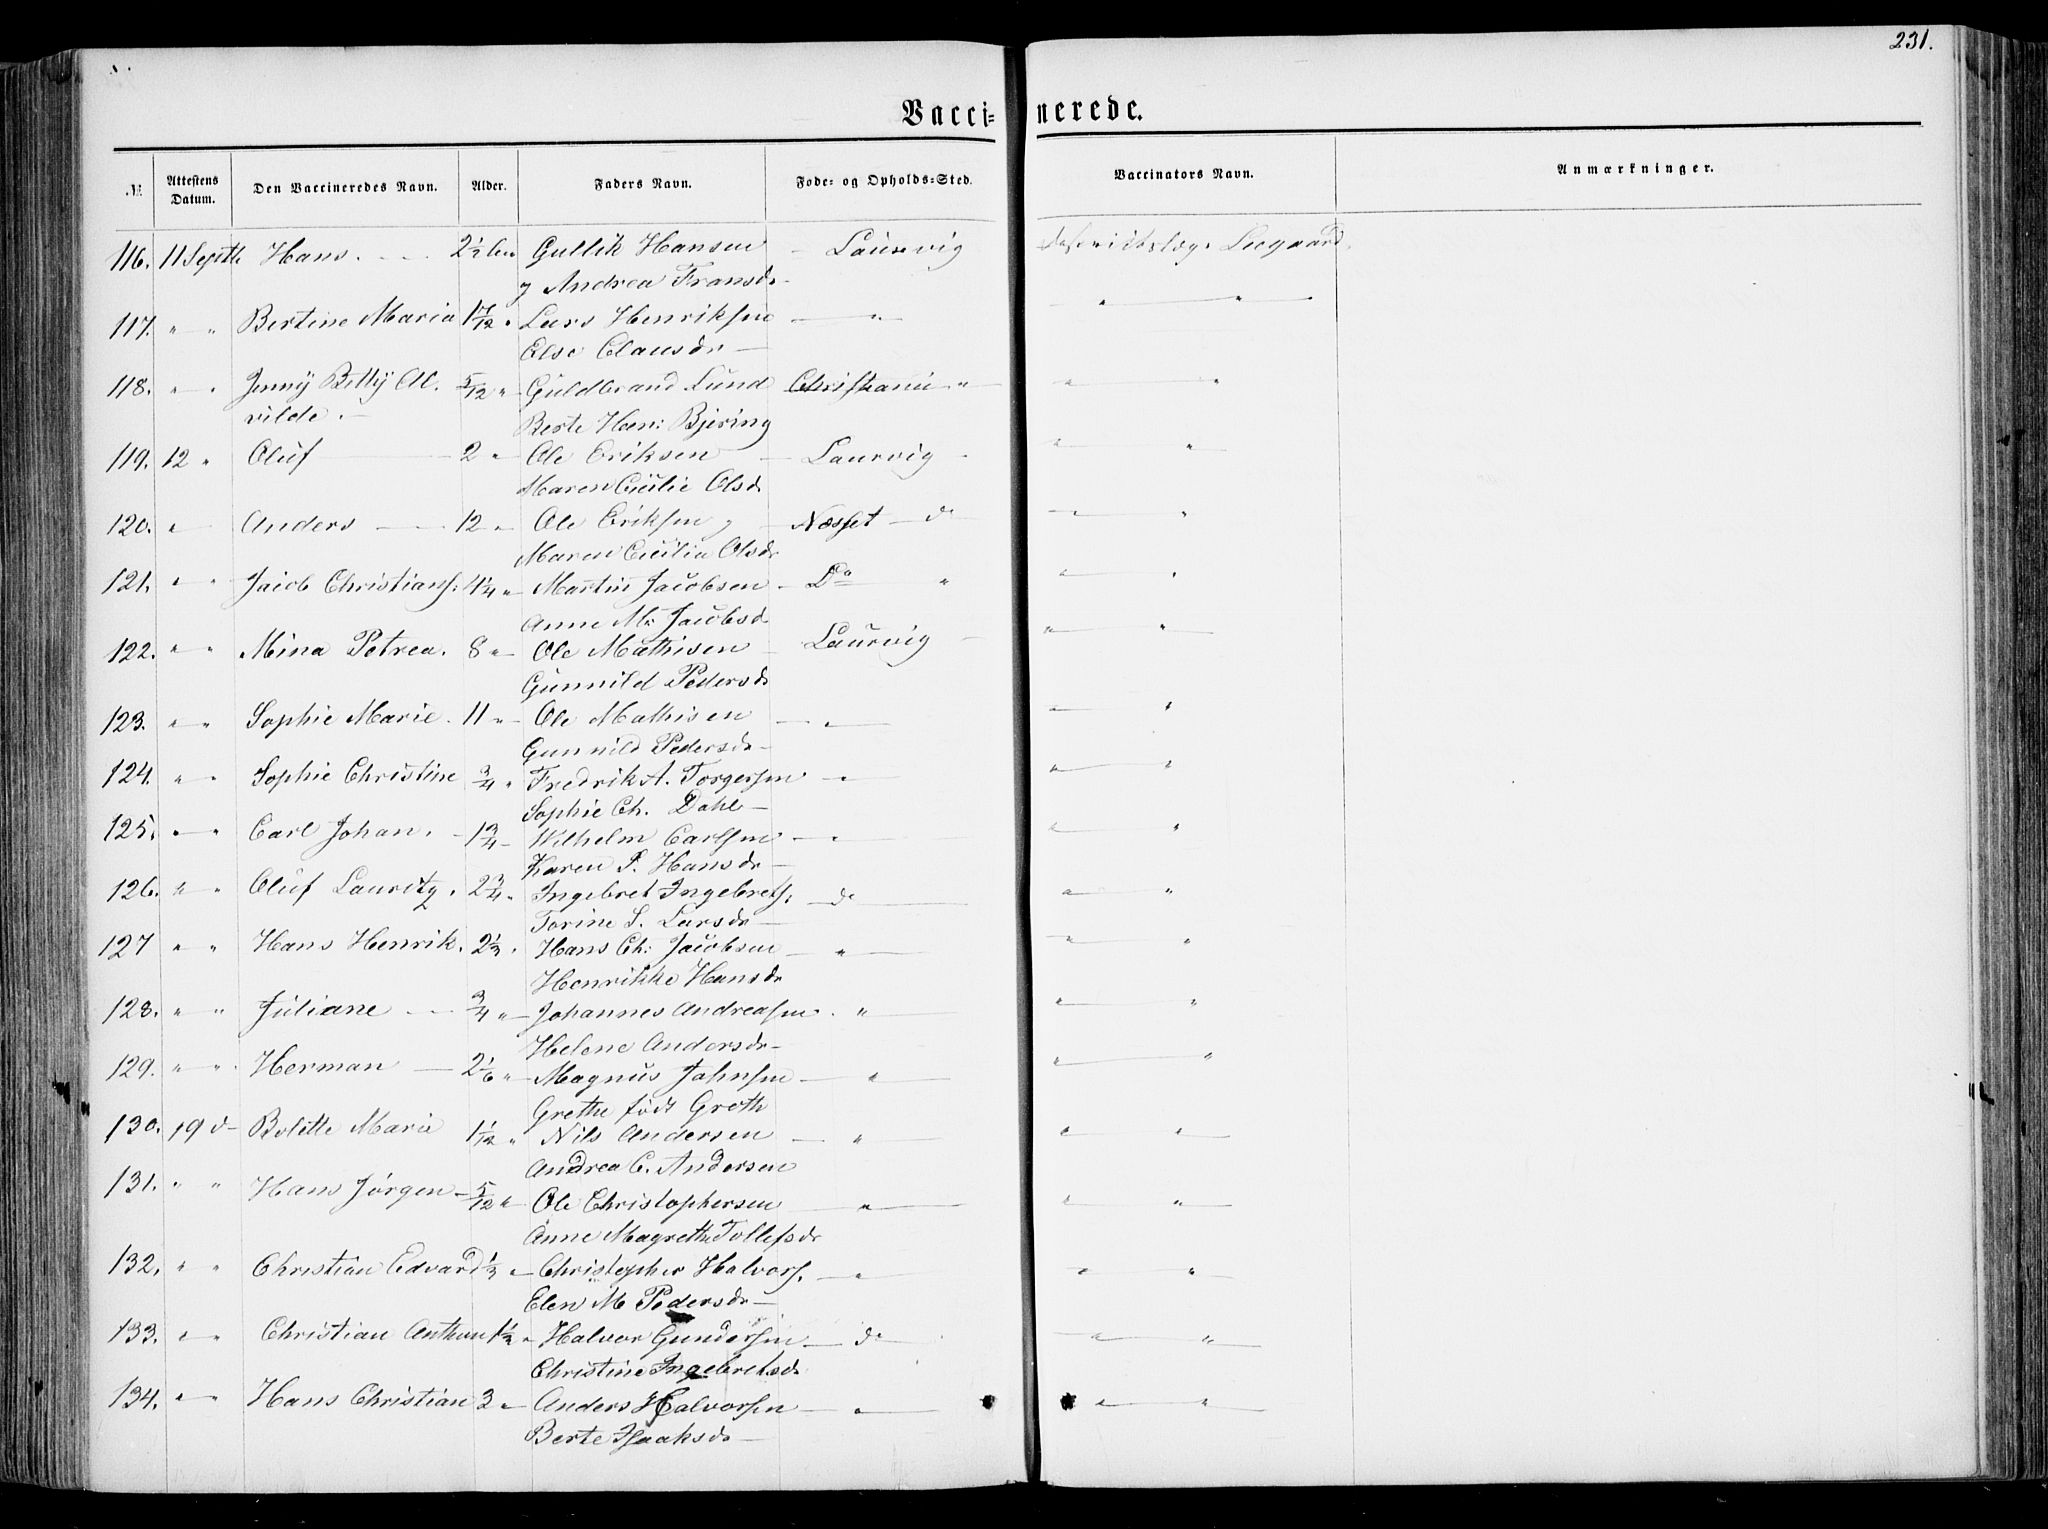 231.
Vacci= nerede.
№ Attestens Datum. Den Vaccineredes Navn. Alder. Faders Navn. Føde= og Opholds=Sted. Vaccinators Navn. Anmærkninger.
116. 11 Septb Hans. 2 1/2 Gullik Hansen Laurvig Districtslæge Leegaard.
og Andrea Fransdr
117. " " Bertine Maria 1 7/12 " Lars Henriksen " " "
Else Clausdr
118. " " Jenny Betty Al. 5/12 " Guldbrand Lund Christiania " " "
vilde. Berte Han: Bjering
119. 12 " Oluf 2 " Ole Eriksen Laurvig " "
Maren Cicilie Olsd
120. " Anders 12 " Ole Eriksen Næsset do " "
Maren Cicilia Olsdr
121. " " Jacob Christians. 4 1/4 " Martin Jacobsen Do " " "
Anne M: Jacobsd
122. " " Mina Petrea. 8 " Ole Mathisen Laurvig " "
Gunnild Pedersd
123. " " Sophie Marie. 11 " Ole Mathisen " " "
Gunnild Pedersdr
124. " " Sophie Christine 3/4 " Fredrik A. Torgersen " " "
Sophie Ch. Dahl
125. " " Carl Johan. 1 3/4 Wilhelm Carlsen " " "
Karen P. Hansdr
126. " " Oluf Lauritz. 2 3/4 " Ingebret Ingebrets. do " "
Torine S. Larsdr
127 " " Hans Henrik. 2 1/3 " Hans Ch: Jacobsen " " "
Henrikke Hansdr
128. " " Juliane 3/4 " Johannes Andreasen. " " "
Helene Andersdr
129. " " Herman 2 1/6 " Magnus Johnsen " " "
Grethe født Groth
130. 19 d Bolette Maria 1 1/12 " Nils Andersen " " "
Andrea C. Andersen
131. " " Hans Jørgen 5/12 " Ole Christophersen " " "
Anne Magrethe Tollefsdr
132. " " Christian Edvard 1/3 " Christopher Halvors. " " "
Elen M Pedersdr
133. " " Christian Anthon 1 1/2 " Halvor Gundersen do " "
Christine Ingebretsdr
134. " " Hans Christian 3 " Anders Halvorsen " " "
Berte Isaaksdr